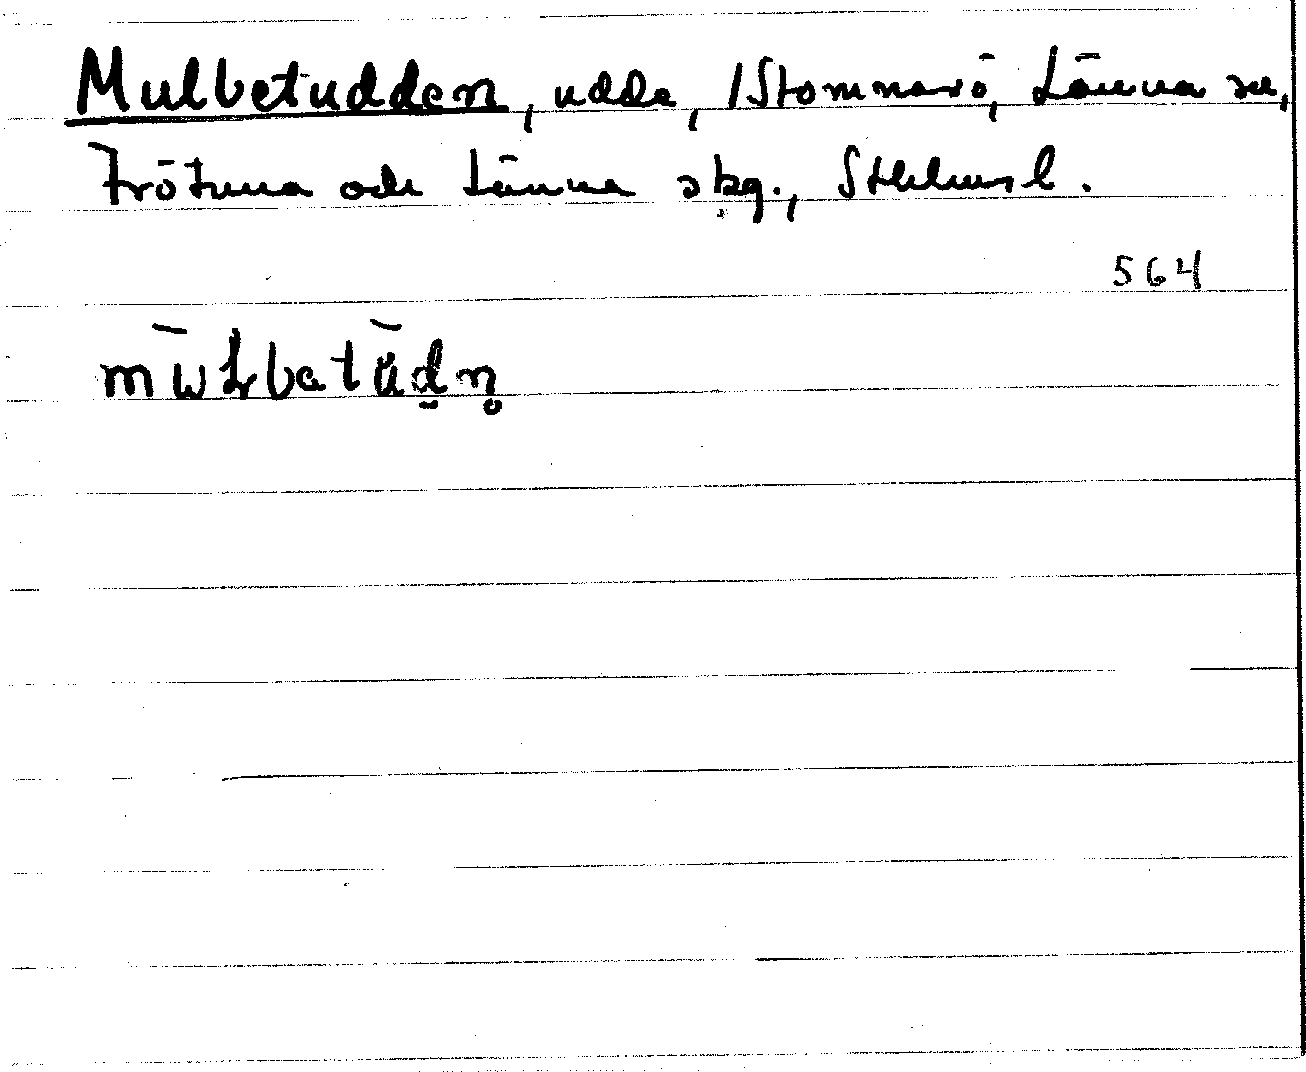 Mulbetudden, udde, /Stommarö, Länna sn,
Frötuna och Länna skg., Sthlms l.
564